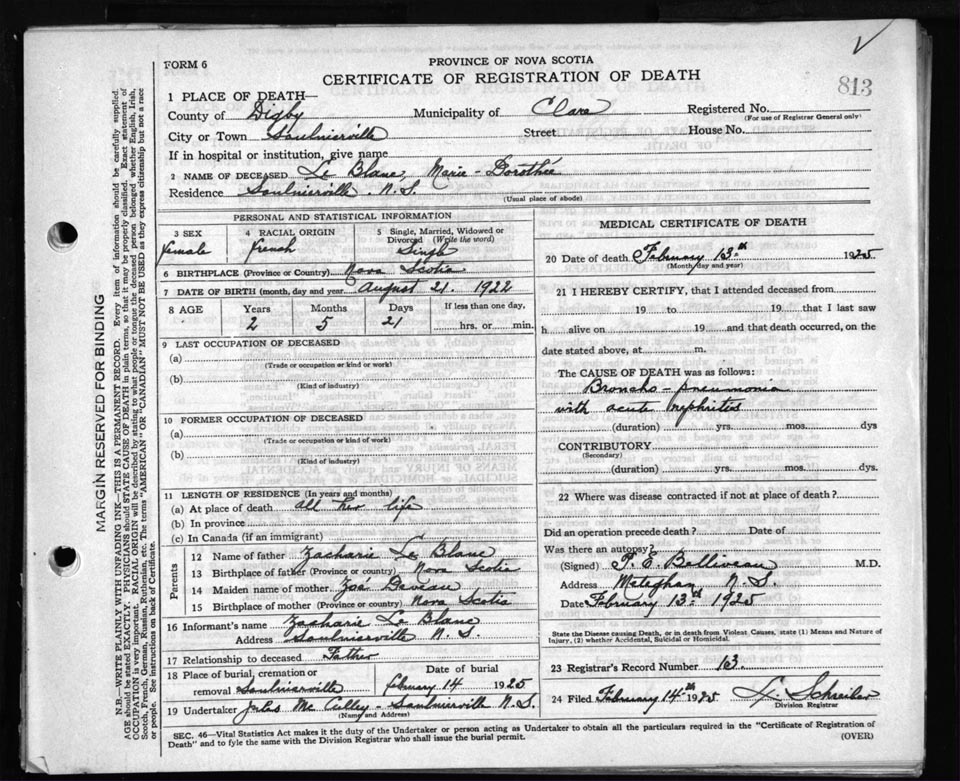 FORM 6
PROVINCE OF NOVA SCOTIA
CERTIFICATE OF REGISTRATION OF DEATH
813
1 PLACE OF DEATH—
County of Digby Municipality of Clare Registered No.
(For use of Registrar General only)
City or Town Saulnierville Street House No.
If in hospital or institution, give name
2 NAME OF DECEASED Le Blanc, Marie - Dorothée
Residence Saulnierville N.S.
(Usual place of abode)
PERSONAL AND STATISTICAL INFORMATION
3 SEX 4 RACIAL ORIGIN 5 Single, Married, Widowed or Divorced (Write the word)
female French Single
6 BIRTHPLACE (Province or Country) Nova Scotia
7 DATE OF BIRTH (month, day and year) August 21. 1922
8 AGE Years Months Days If less than one day,
2 5 21 hrs. or min.
9 LAST OCCUPATION OF DECEASED
(a)
(Trade or occupation or kind or work)
(b)
(Kind of industry)
10 FORMER OCCUPATION OF DECEASED
(a)
(Trade or occupation or kind of work)
(b)
(Kind of industry)
11 LENGTH OF RESIDENCE (In years and months)
(a) At place of death all her life
(b) In province
(c) In Canada (if an immigrant)
Parents
12 Name of father Zacharie Le Blanc
13 Birthplace of father (Province or country) Nova Scotia
14 Maiden name of mother Zoé Deveau
15 Birthplace of mother (Province or country) Nova Scotia
16 Informant's name Zacharie Le Blanc
Address Saulnierville N.S.
17 Relationship to deceased Father
18 Place of burial, cremation or removal Saulnierville
Date of burial
February 14 1925
19 Undertaker Jules Mc Culley - Saulnierville N.S.
(Name and Address)
MEDICAL CERTIFICATE OF DEATH
20 Date of death February 13th 1925
(Month, day and year)
21 I HEREBY CERTIFY, that I attended deceased from
19 to 19 that I last saw
h alive on 19 and that death occurred, on the
date stated above, at m.
The CAUSE OF DEATH was as follows:
Broncho - pneumonia
with acute nephritis
(duration) yrs. mos. dys
CONTRIBUTORY
(Secondary)
(duration) yrs. mos. dys.
22 Where was disease contracted if not at place of death?
Did an operation precede death? Date of
Was there an autopsy?
(Signed) P. E. Belliveau M.D.
Address Meteghan N.S.
Date February 13th 1925
State the Disease causing Death, or in death from Violent Causes, state (1) Means and Nature of
Injury, (2) whether Accidental, Suicidal or Homicidal.
23 Registrar's Record Number 13.
24 Filed February 14th 1925
Division Registrar
SEC. 46—Vital Statistics Act makes it the duty of the Undertaker or person acting as Undertaker to obtain all the particulars required in the "Certificate of Registration of
Death" and to fyle the same with the Division Registrar who shall issue the burial permit. (OVER)
MARGIN RESERVED FOR BINDING
N.B.—WRITE PLAINLY WITH UNFADING INK—THIS IS A PERMANENT RECORD. Every item of information should be carefully supplied.
AGE should be stated EXACTLY. PHYSICIANS should STATE CAUSE OF DEATH in plain terms, so that it may be properly classified. Exact statement of
OCCUPATION is very important. RACIAL ORIGIN will be described by stating to what people or tongue the deceased person belonged whether English, Irish,
Scotch, French, German, Russian, Ruthenian, etc. The terms "AMERICAN" or "CANADIAN" MUST NOT BE USED as they express citizenship but not a race
or people. See instructions on back of Certificate.